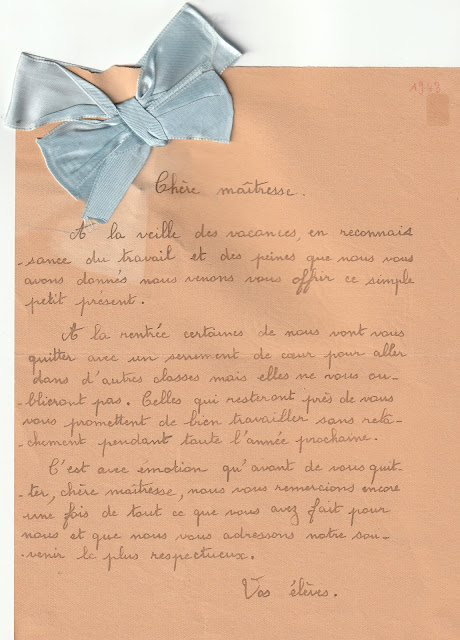 1943
Chère maîtresse.
A la veille des vacances, en reconnais
-sance du travail et des peines que nous vous
avons donnés nous venons vous offrir ce simple
petit présent.
A la rentrée certaines de nous vont vous
quitter avec un serrement de cœur pour aller
dans d'autres classes mais elles ne vous ou-
-blieront pas. Celles qui resteront près de vous
vous promettent de bien travailler sans relâ-
-chement pendant toute l'année prochaine.
C'est avec émotion qu'avant de vous quit-
-ter, chère maîtresse, nous vous remercions encore
une fois de tout ce que vous avez fait pour
nous et que nous vous adressons notre sou-
-venir le plus respectueux.
Vos élèves.